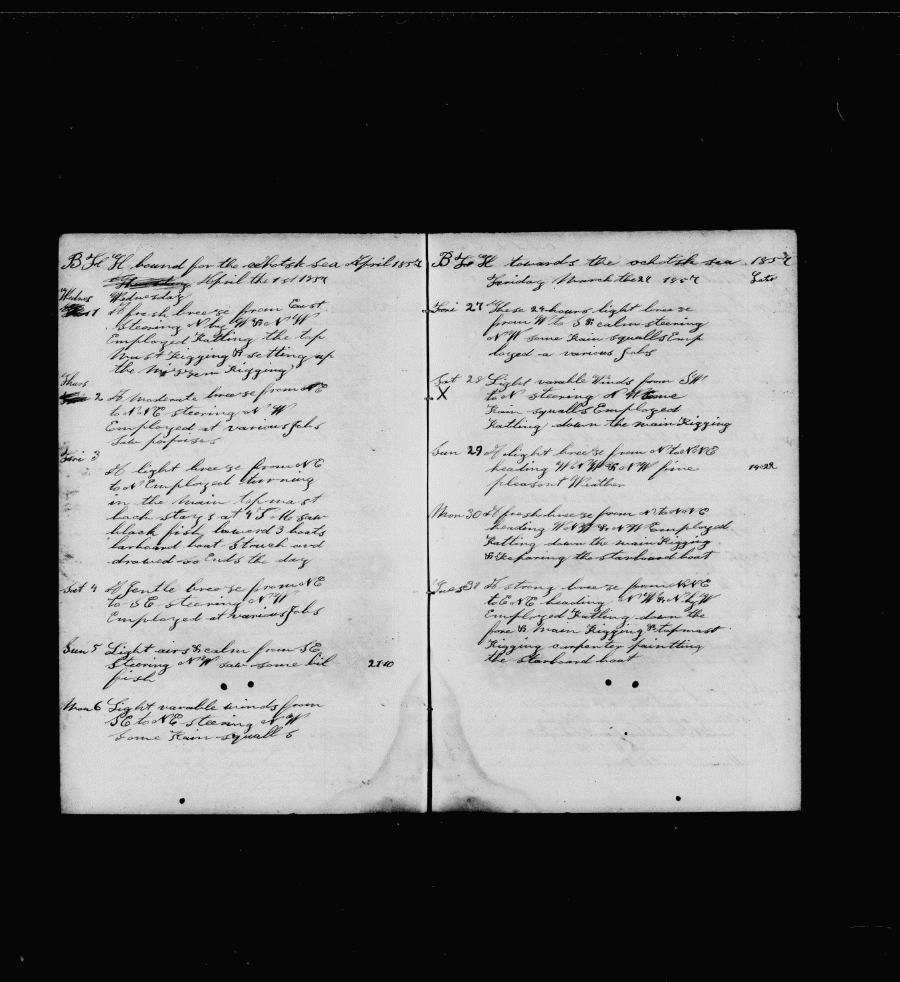 B Fr H bound for the ochotsk sea April 1857
April the 1st 1857
Wednes Wednesday
1 A fresh breeze from East
Steering N by W & N W
Employed Ratling the top
Mast Rigging & setting up
the Mizzem Rigging
Thurs
2 A Moderate breeze from NE
to NNE steering N W
Employed at various Jobs
Saw porpises
Fri 3
A light breeze from NE
to N Employed turning
in the Main topmast
back stays at 4 P M saw
black fish lowerd 3 boats
larboard boat Struck and
drawed so Ends the day
Sat 4 A Jentle breeze from NE
to SE steering N W
Employed at various Jobs
Sun 5 Light airs & calm from SE
Steering N W saw some bil
fish
Mon 6 Light varable winds from
SE to NE steering N W
Some Rain squalls
B Fr H towards the ochotsk sea 1857
Friday March the 27 1857 Lats
Fri 27 These 24 hours light breeze
from W to S & calm steering
N W some Rain squalls Emp
loyed a various Jobs
Sat 28 Light varable Winds from SW
X to N steering N W Some
Rain squalls Employed
Ratling down the main Rigging
Sun 29 A light breeze from N to NNE
heading WNW & NW fine
pleasant Weather
Mon 30 A fresh breeze from N to NNE
heading WNW & NW Employed
Ratling down the main Rigging
& Reparing the starboard boat
Tues 31 A strong breeze from NNE
to ENE heading N W & N by W
Employed Ratling down the
fore & main Rigging & topmast
Rigging carpenter paintting
the starboard boat